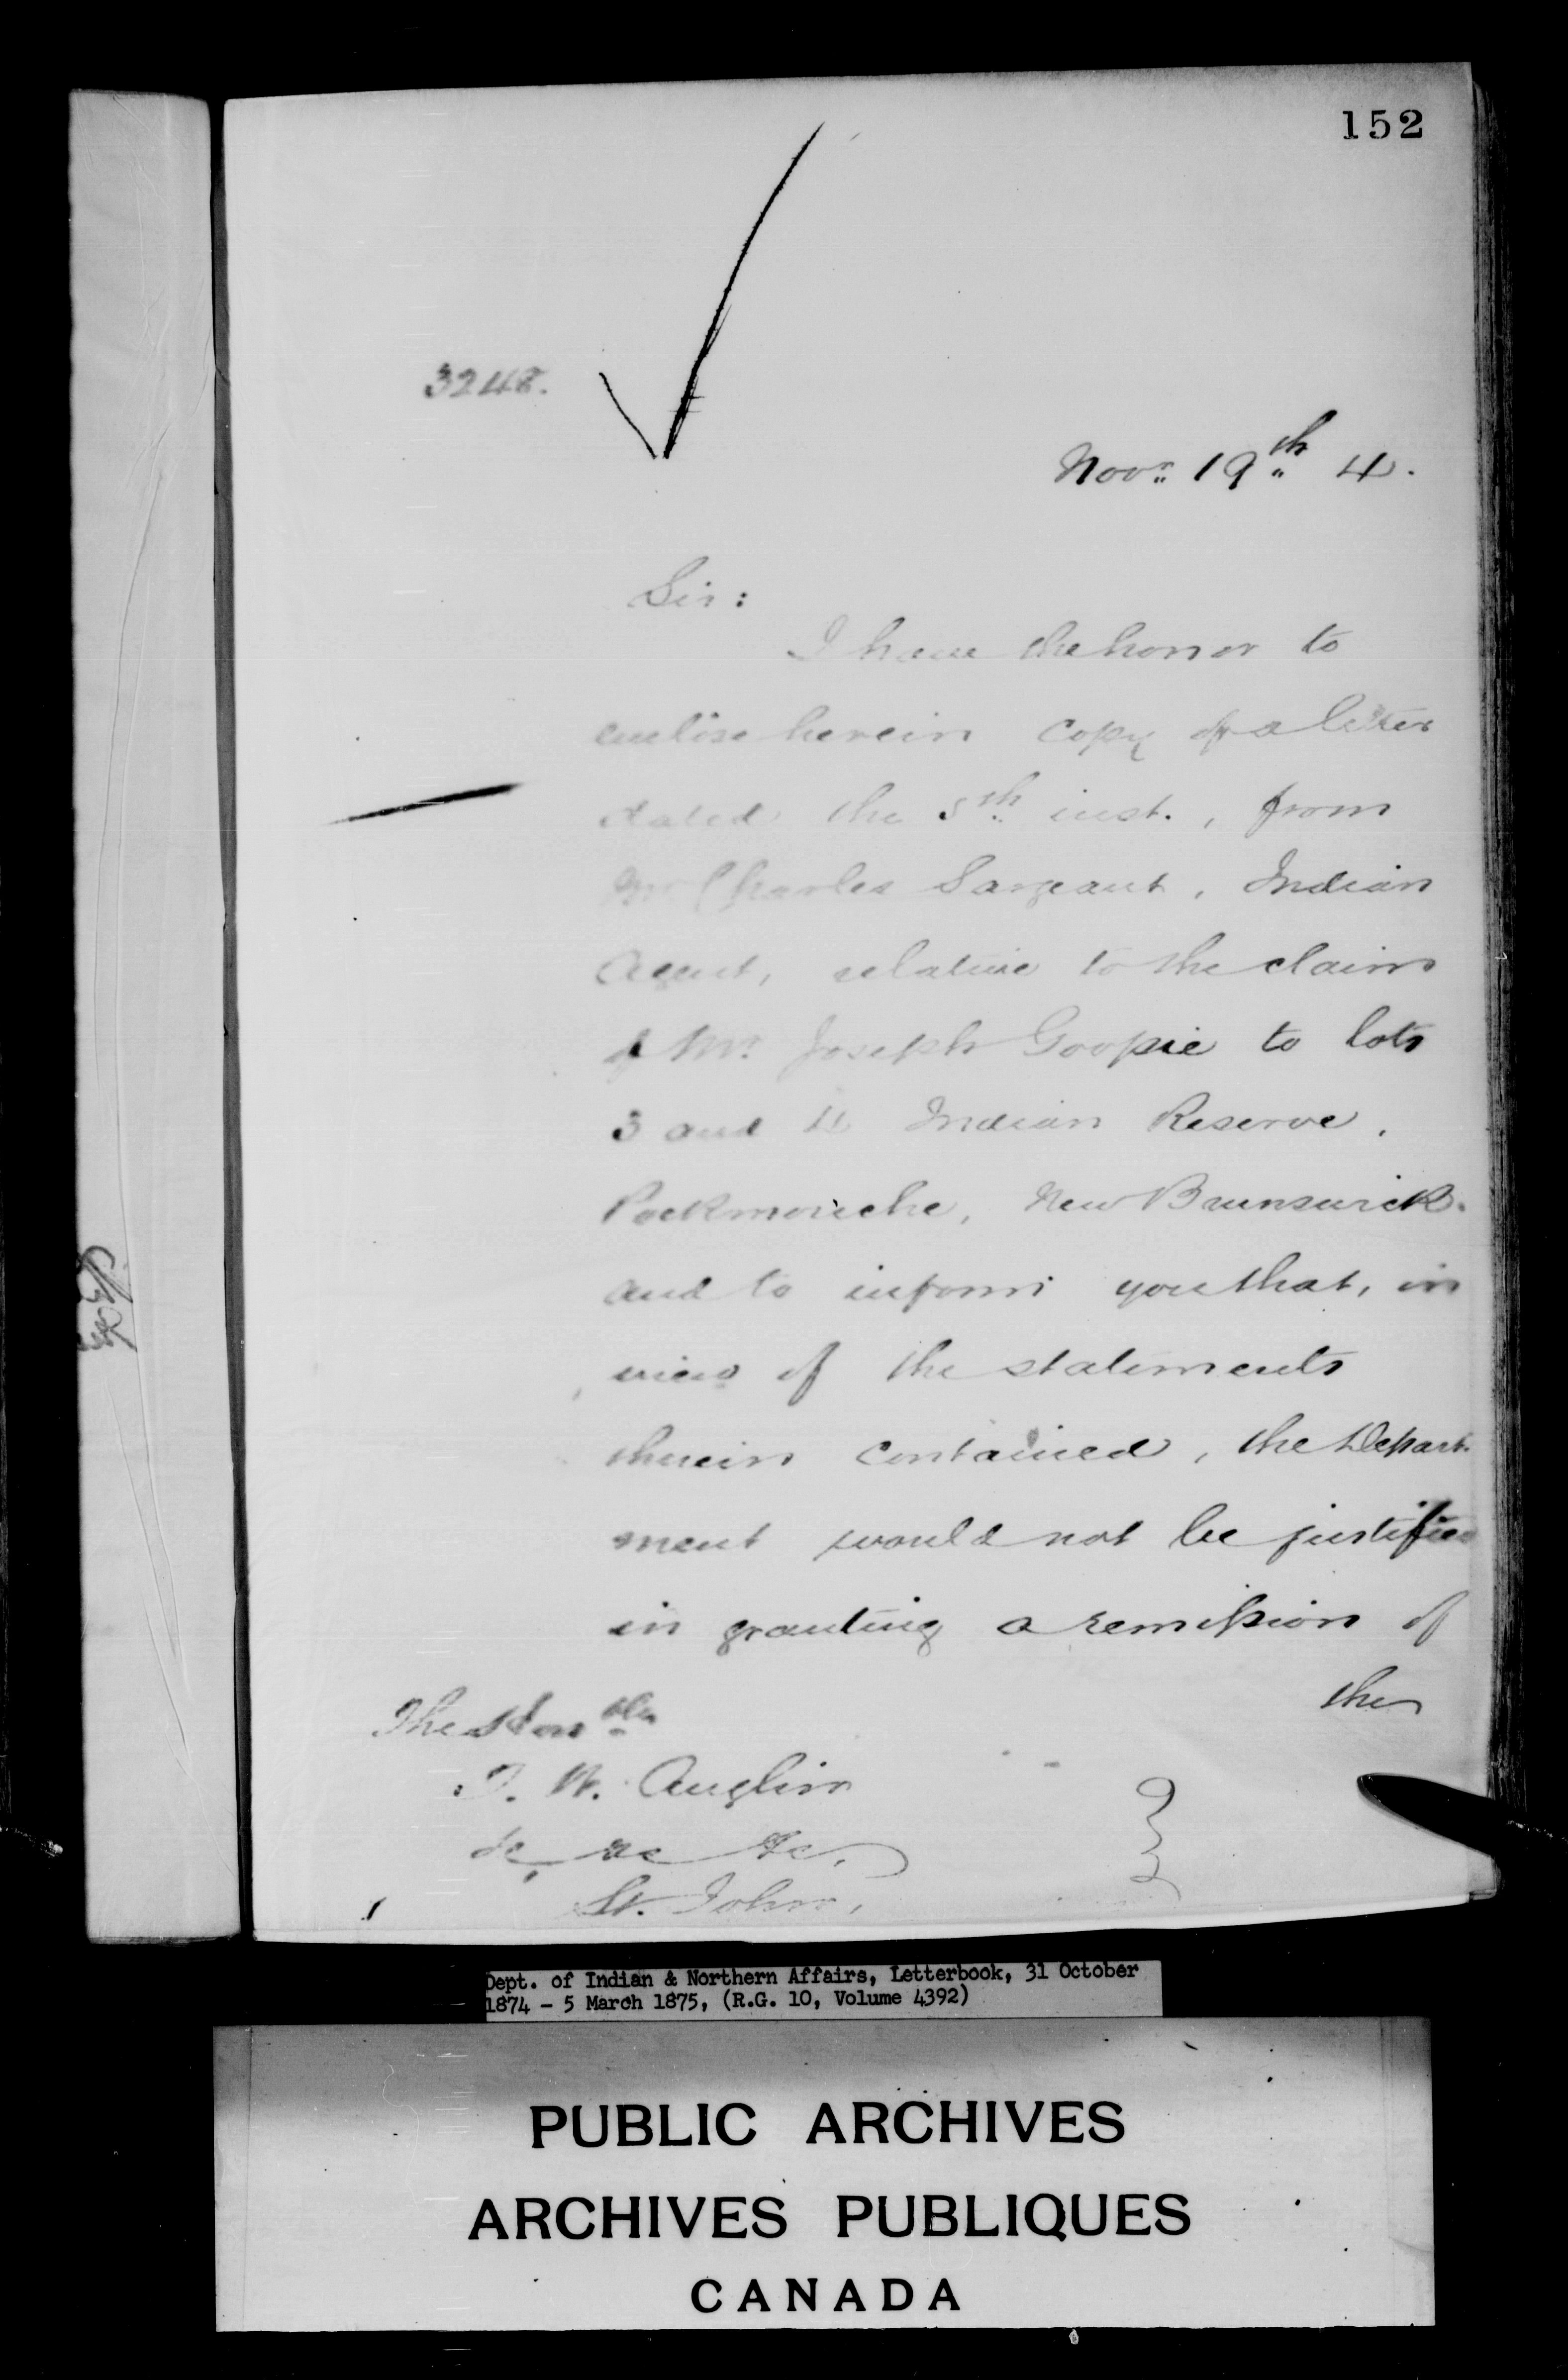 152
3248.
Novr. 19th 4.
Sir:
I have the honor to
enclose herein copy of a letter
dated the 5th inst., from
Mr Charles Sargeant, Indian
Agent, relative to the claim
of Mr. Joseph Goopie to lots
3 and 4 Indian Reserve,
Pockmouche, New Brunswick.
and to inform you that, in
view of the statements
therein contained, the Depart-
ment would not be justified
in granting a remission of
the
The Honble
T. W. Anglin
&c &c &c.
St. John,
Dept. of Indian & Northern Affairs, Letterbook, 31 October
1874 - 5 March 1875, (R.G. 10, Volume 4392)
PUBLIC ARCHIVES
ARCHIVES PUBLIQUES
CANADA